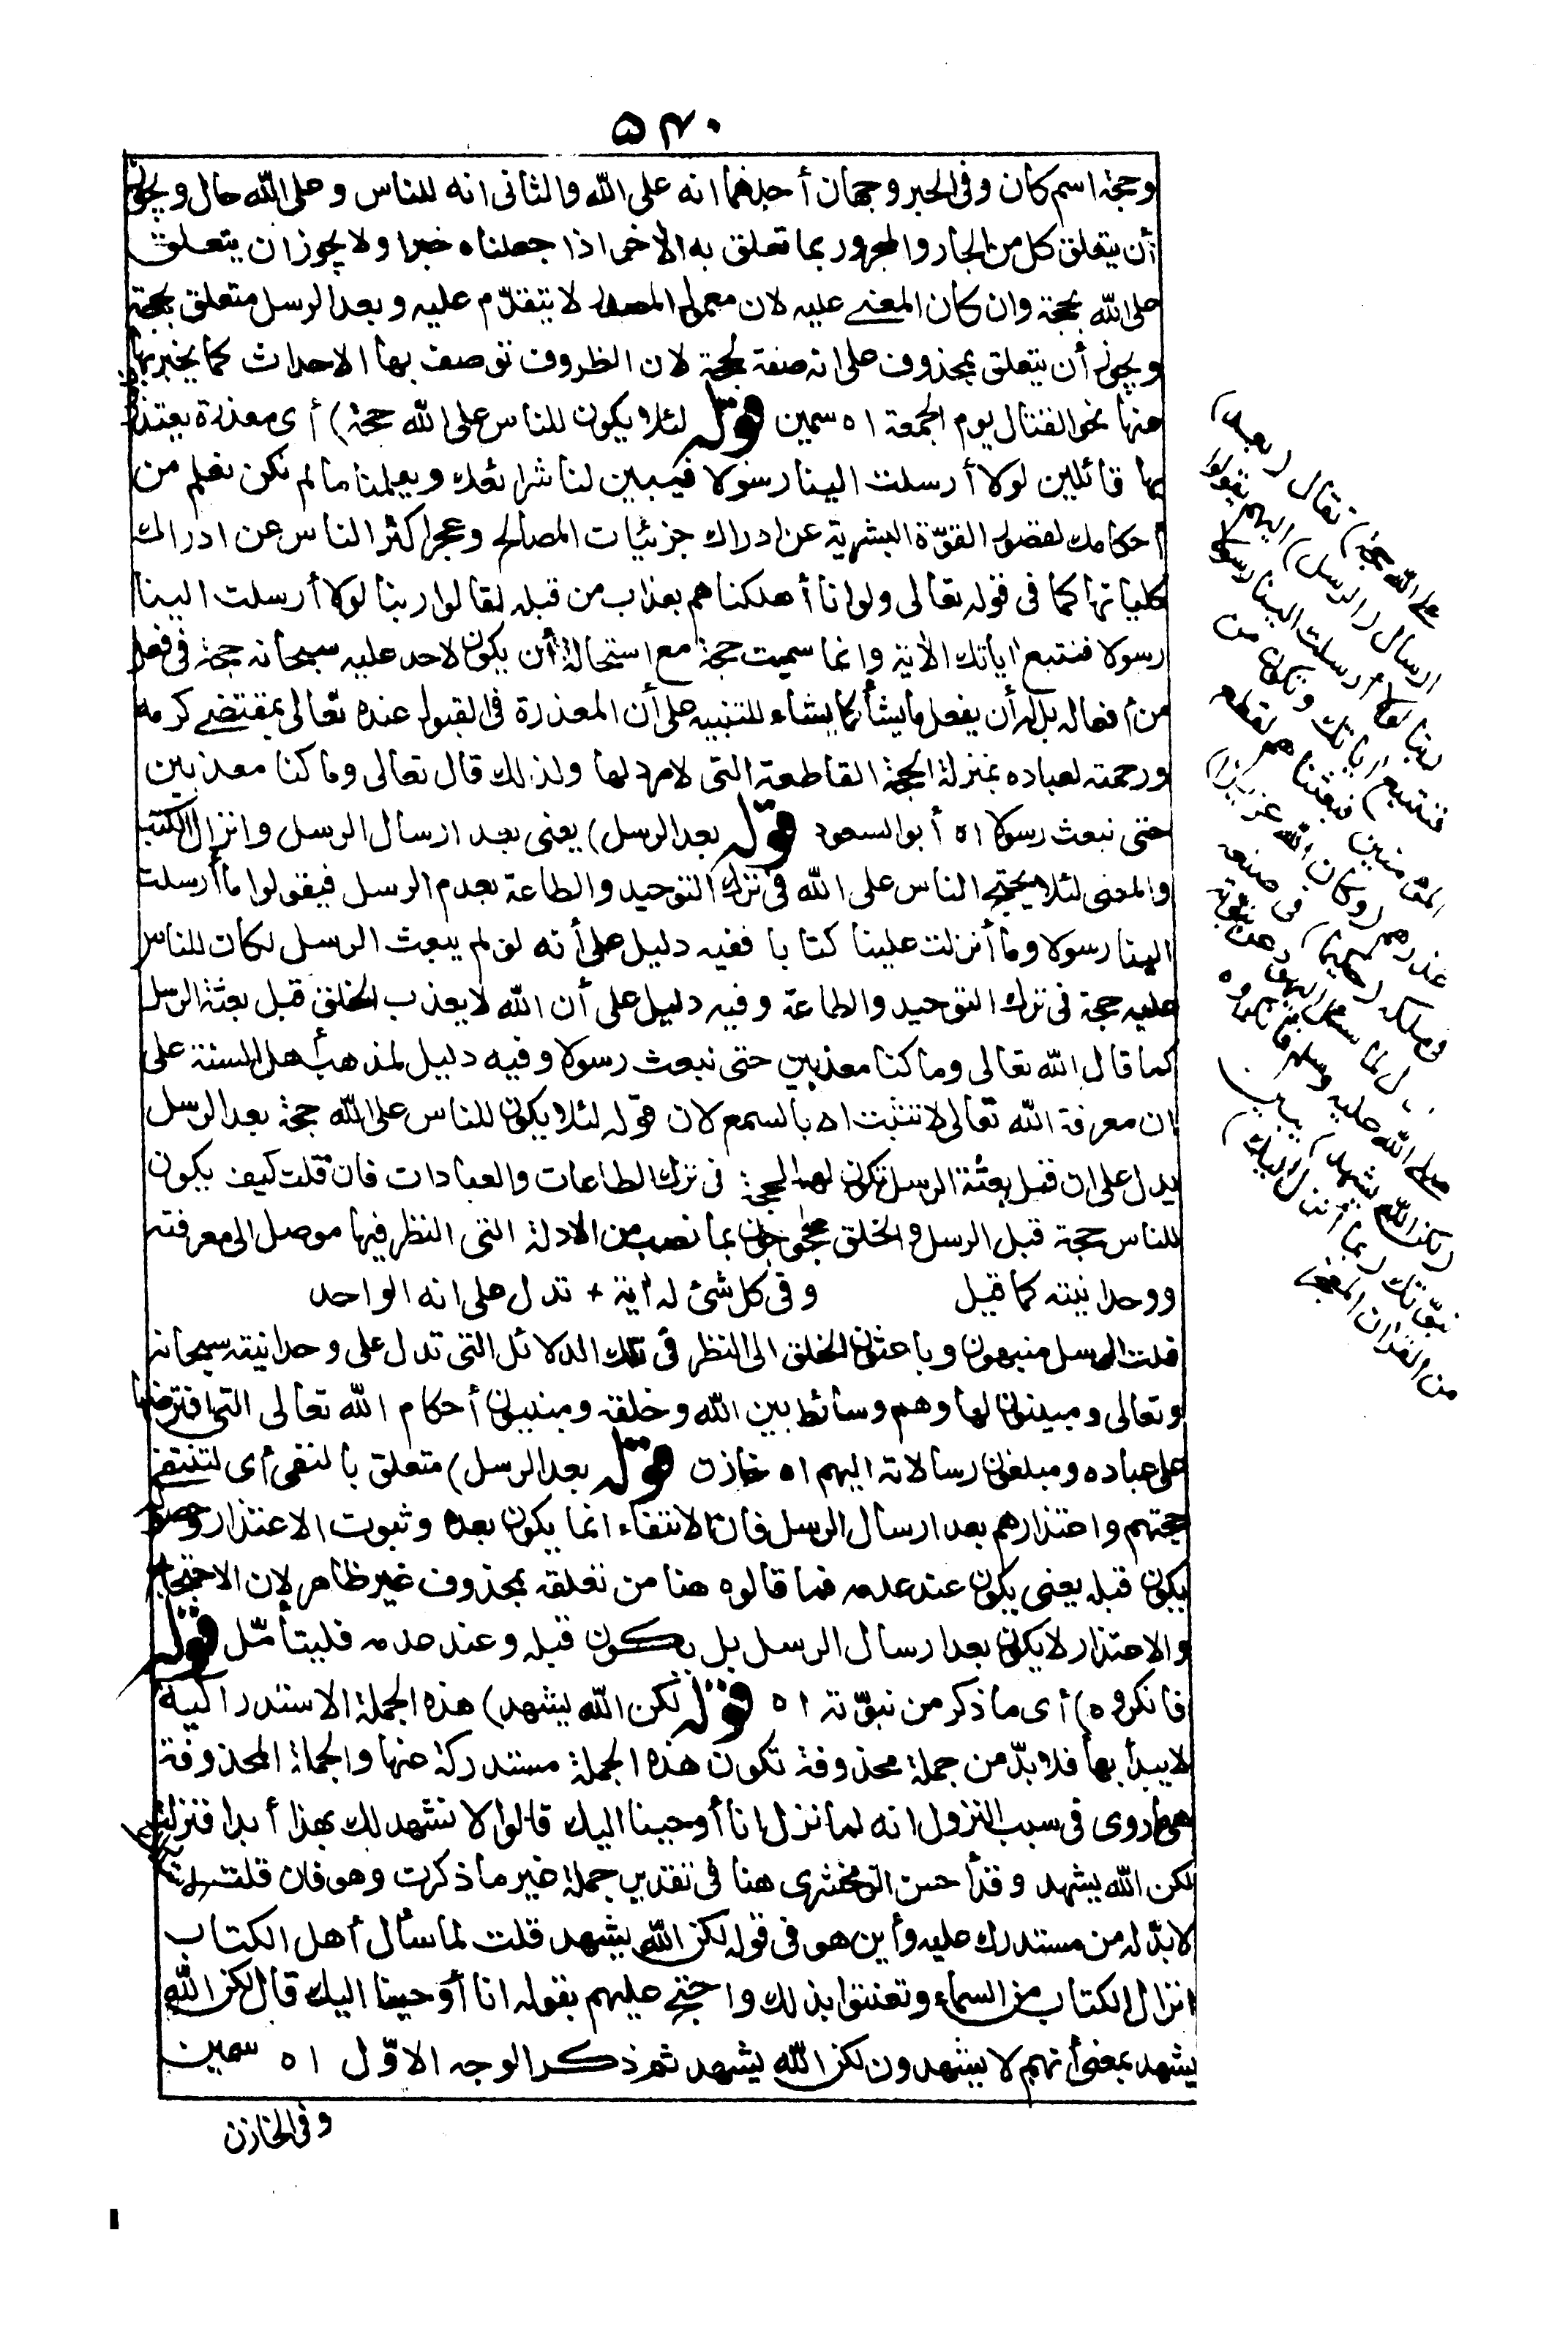 ٥٤٠
وحجة اسم كان وفى الخبر وجهان أحدهما انه على الله والثانى انه للناس وعلى الله حال ويجوز
أن يتعلق كل من الجار والمجرور بما تعلق به الآخر اذا جعلناه خبرا ولا يجوز ان يتعلق
على الله بحجة وان كان المعنى عليه لان معمول المصدر لا يتقدّم عليه وبعد الرسل متعلق بحجة
ويجوز أن يتعلق بمحذوف على انه صفة لحجة لان الظروف توصف بها الاحداث كما يخبر بها
عنها نحو القتال يوم الجمعة اه سمين قوله لئلا يكون للناس على الله حجة) أى معذرة يعتذرون
بها قائلين لولا أرسلت الينا رسولا فيبين لنا شرائعك ويعلمنا ما لم نكن نعلم من
أحكامك لقصور القوّة البشرية عن ادراك جزئيات المصالح وعجز أكثر الناس عن ادراك
كلياتها كما فى قوله تعالى ولو انا أهلكناهم بعذاب من قبله لقالوا ربنا لولا أرسلت الينا
رسولا فنتبع اياتك الآية وانما سميت حجة مع استحالة أن يكون لاحد عليه سبحانه حجة فى فعل
من أفعاله بل له أن يفعل ما يشاء كما يشاء للتنبيه على أن المعذرة فى القبول عنده تعالى بمقتضى كرمه
ورحمته لعباده بمنزلة الحجة القاطعة التى لا مرد لها ولذلك قال تعالى وما كنا معذبين
حتى نبعث رسولا اه أبو السعود قوله بعد الرسل) يعنى بعد ارسال الرسل وانزال الكتب
والمعنى لئلا يحتج الناس على الله فى ترك التوحيد والطاعة بعدم الرسل فيقولوا ما أرسلت
الينا رسولا وما أنزلت علينا كتابا ففيه دليل على أنه لو لم يبعث الرسل لكان للناس
عليه حجة فى ترك التوحيد والطاعة وفيه دليل على أن الله لا يعذب الخلق قبل بعثة الرسل
كما قال الله تعالى وما كنا معذبين حتى نبعث رسولا وفيه دليل لمذهب أهل السنة على
ان معرفة الله تعالى لا تثبت الا بالسمع لان قوله لئلا يكون للناس على الله حجة بعد الرسل
يدل على ان قبل بعثة الرسل تكون لهم الحجة فى ترك الطاعات والعبادات فان قلت كيف يكون
للناس حجة قبل الرسل والخلق محجوجون بما نصب من الادلة التى النظر فيها موصل الى معرفته
ووحدانيته كما قيل وفى كل شئ له آية + تدل على انه الواحد
قلت الرسل منبهون وباعثون الخلق الى النظر فى تلك الدلائل التى تدل على وحدانيته سبحانه
وتعالى ومبينون لها وهم وسائط بين الله وخلقه ومبينون أحكام الله تعالى التى افترضها
على عباده ومبلغون رسالاته اليهم اه خازن قوله بعد الرسل) متعلق بالنفى أى لتنتفى
حجتهم واعتذارهم بعد ارسال الرسل فان الانتفاء انما يكون بعده وثبوت الاعتذار وحصوله
يكون قبله يعنى يكون عند عدمه فما قالوه هنا من تعلقه بمحذوف غير ظاهر لان الاحتجاج
والاعتذار لا يكون بعد ارسال الرسل بل يكون قبله وعند عدمه فليتأمّل قوله
فانكروه) أى ما ذكر من نبوّته اه قوله لكن الله يشهد) هذه الجملة الاستدراكية
لا يبدأ بها فلا بدّ من جملة محذوفة تكون هذه الجملة مستدركة عنها والجملة المحذوفة
هى ما روى فى سبب النزول انه لما نزل انا أوحينا اليك قالوا لا نشهد لك بهذا أبدا فنزلت
لكن الله يشهد وقد أحسن الزمخشرى هنا فى تقدير جملة غير ما ذكرت وهو فان قلت
لا بدّ له من مستدرك عليه وأين هو فى قوله لكن الله يشهد قلت لما سأل أهل الكتاب
انزال الكتاب من السماء وتعنتوا بذلك واحتج عليهم بقوله انا أوحينا اليك قال لكن الله
يشهد بمعنى أنهم لا يشهدون لكن الله يشهد ثم ذكر الوجه الاوّل اه سمين
وفى الخازن
على الله حجة) تقال (بعد)
ارسال (الرسل) اليهم فيقولوا
ربنا لولا أرسلت الينا رسولا
فنتبع اياتك ونكون من
المؤمنين فبعثناهم لقطع
عذرهم (وكان الله عزيزا)
فى ملكه (حكيما) فى صنعه
ونزل لما سئل اليهود عن نبوّته
صلى الله عليه وسلم فانكروه
(لكن الله يشهد) يبين
نبوّتك (بما أنزل اليك)
من القرآن المعجز